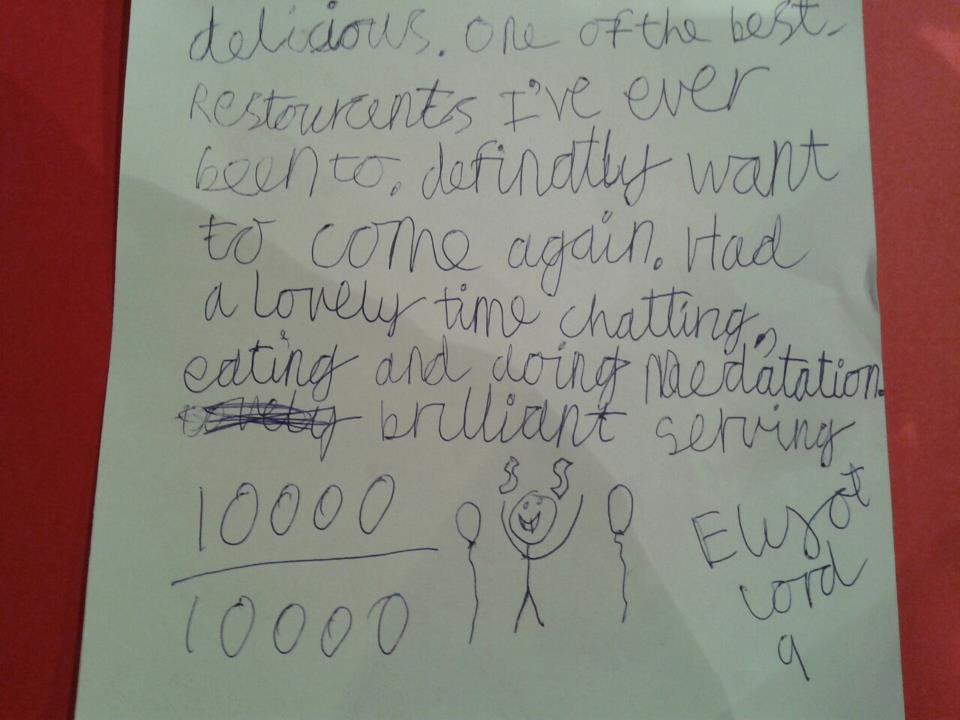 delicious. One of the best
Restourcents I've ever
been to. defindtly want
to come again. Had
a lovely time chatting,
eating and doing Maedatation.
brilliant serving
10000
10000
cord
9